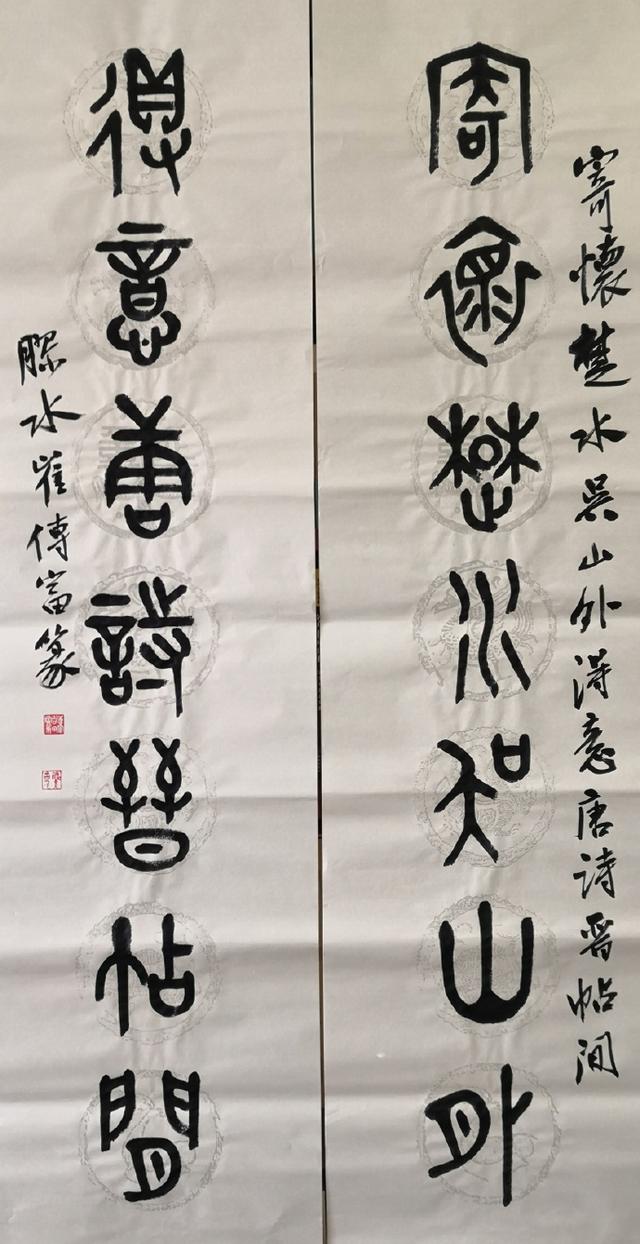 寄懷楚水吳山外得意唐诗晋帖间
寄懷楚水吳山外
得意唐詩晉帖間
膠水崔傳富篆